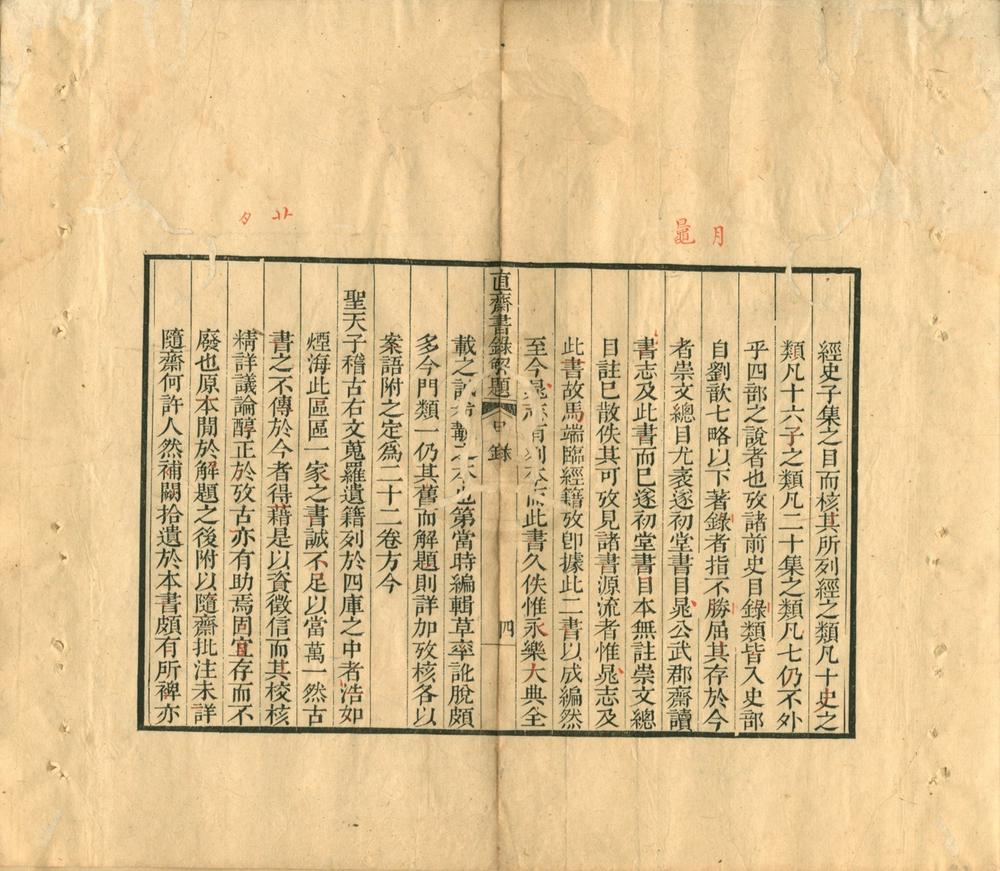 月
鼂
經史子集之目而核其所列經之類凡十史之
類凡十六子之類凡二十集之類凡七仍不外
乎四部之說者也攷諸前史目錄類皆入史部
自劉歆七略以下著錄者指不勝屈其存於今
者崇文總目尤袤遂初堂書目晁公武郡齋讀
書志及此書而已遂初堂書目本無註崇文總
目註已散佚其可攷見諸書源流者惟晁志及
此書故馬端臨經籍攷卽據此二書以成編然
至今晁志有刻本而此書久佚惟永樂大典全
直齋書錄解題 目錄 四
載之第當時編輯草率訛脫頗
多今門類一仍其舊而解題則詳加攷核各以
案語附之定爲二十二卷方今
聖天子稽古右文蒐羅遺籍列於四庫之中者浩如
煙海此區區一家之書誠不足以當萬一然古
書之不傳於今者得藉是以資徵信而其校核
精詳議論醇正於攷古亦有助焉固宜存而不
廢也原本閒於解題之後附以隨齋批注未詳
隨齋何許人然補闕拾遺於本書頗有所裨亦